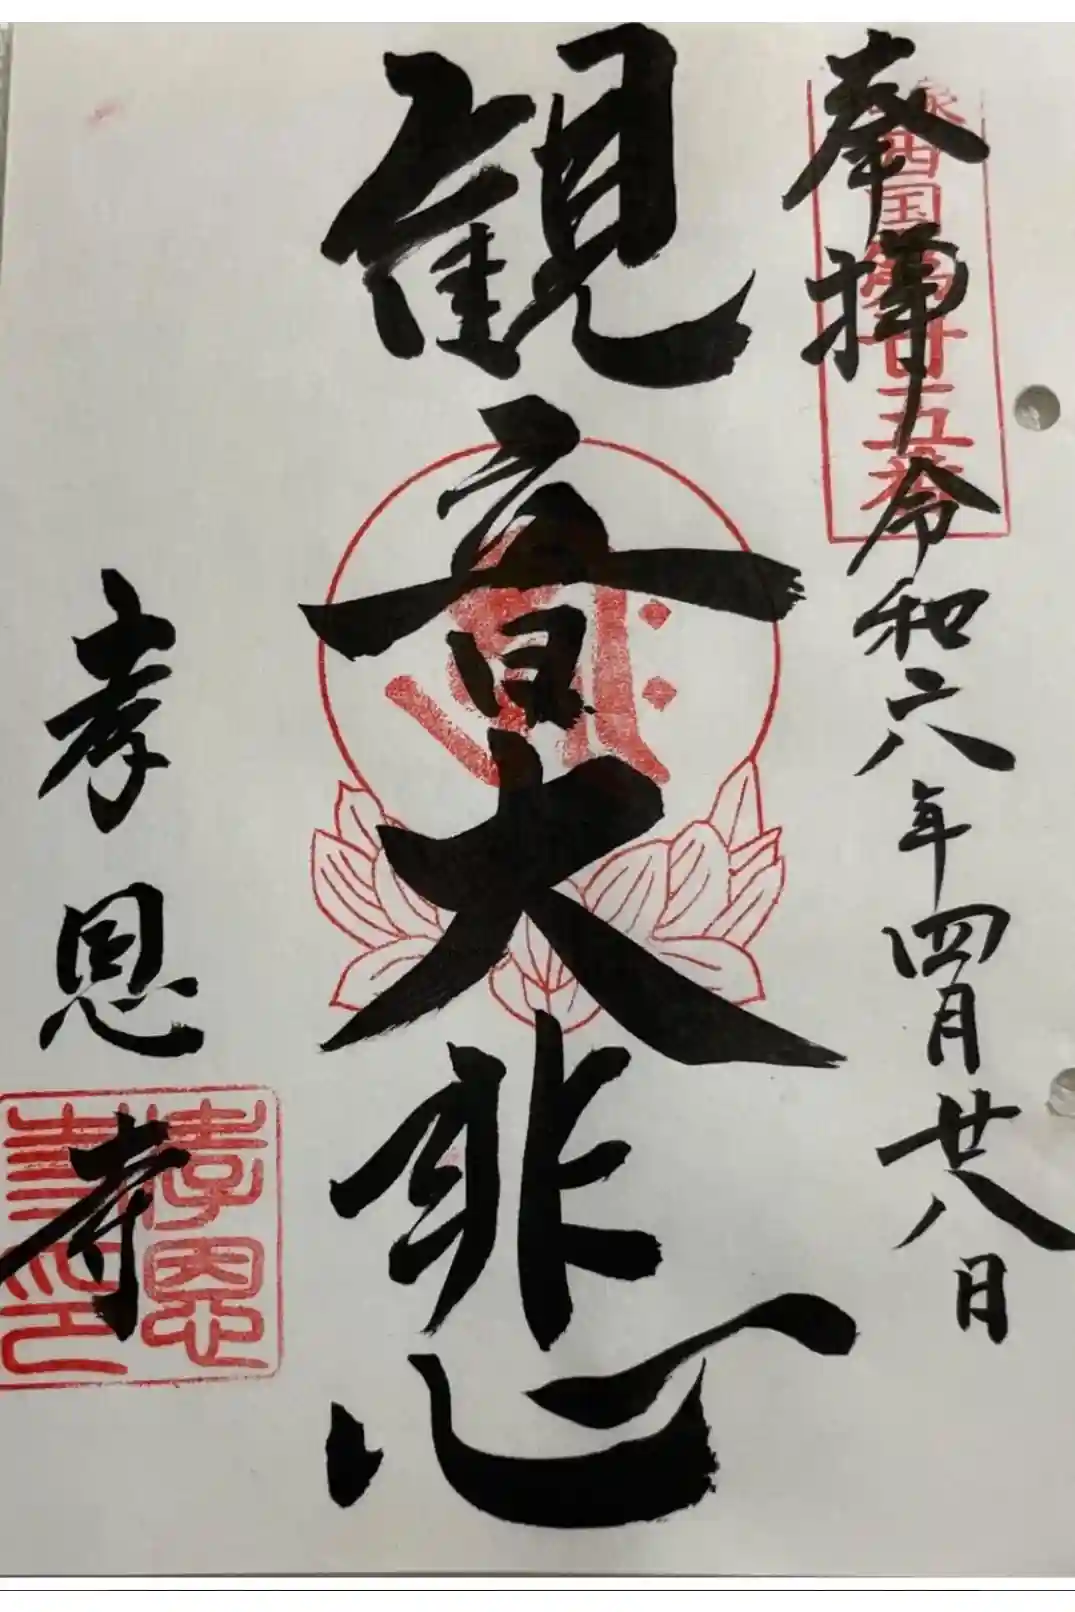 奉拝
令和六年四月廿八日
西国第廿五番
観音大悲心
孝恩寺
孝恩
寺印